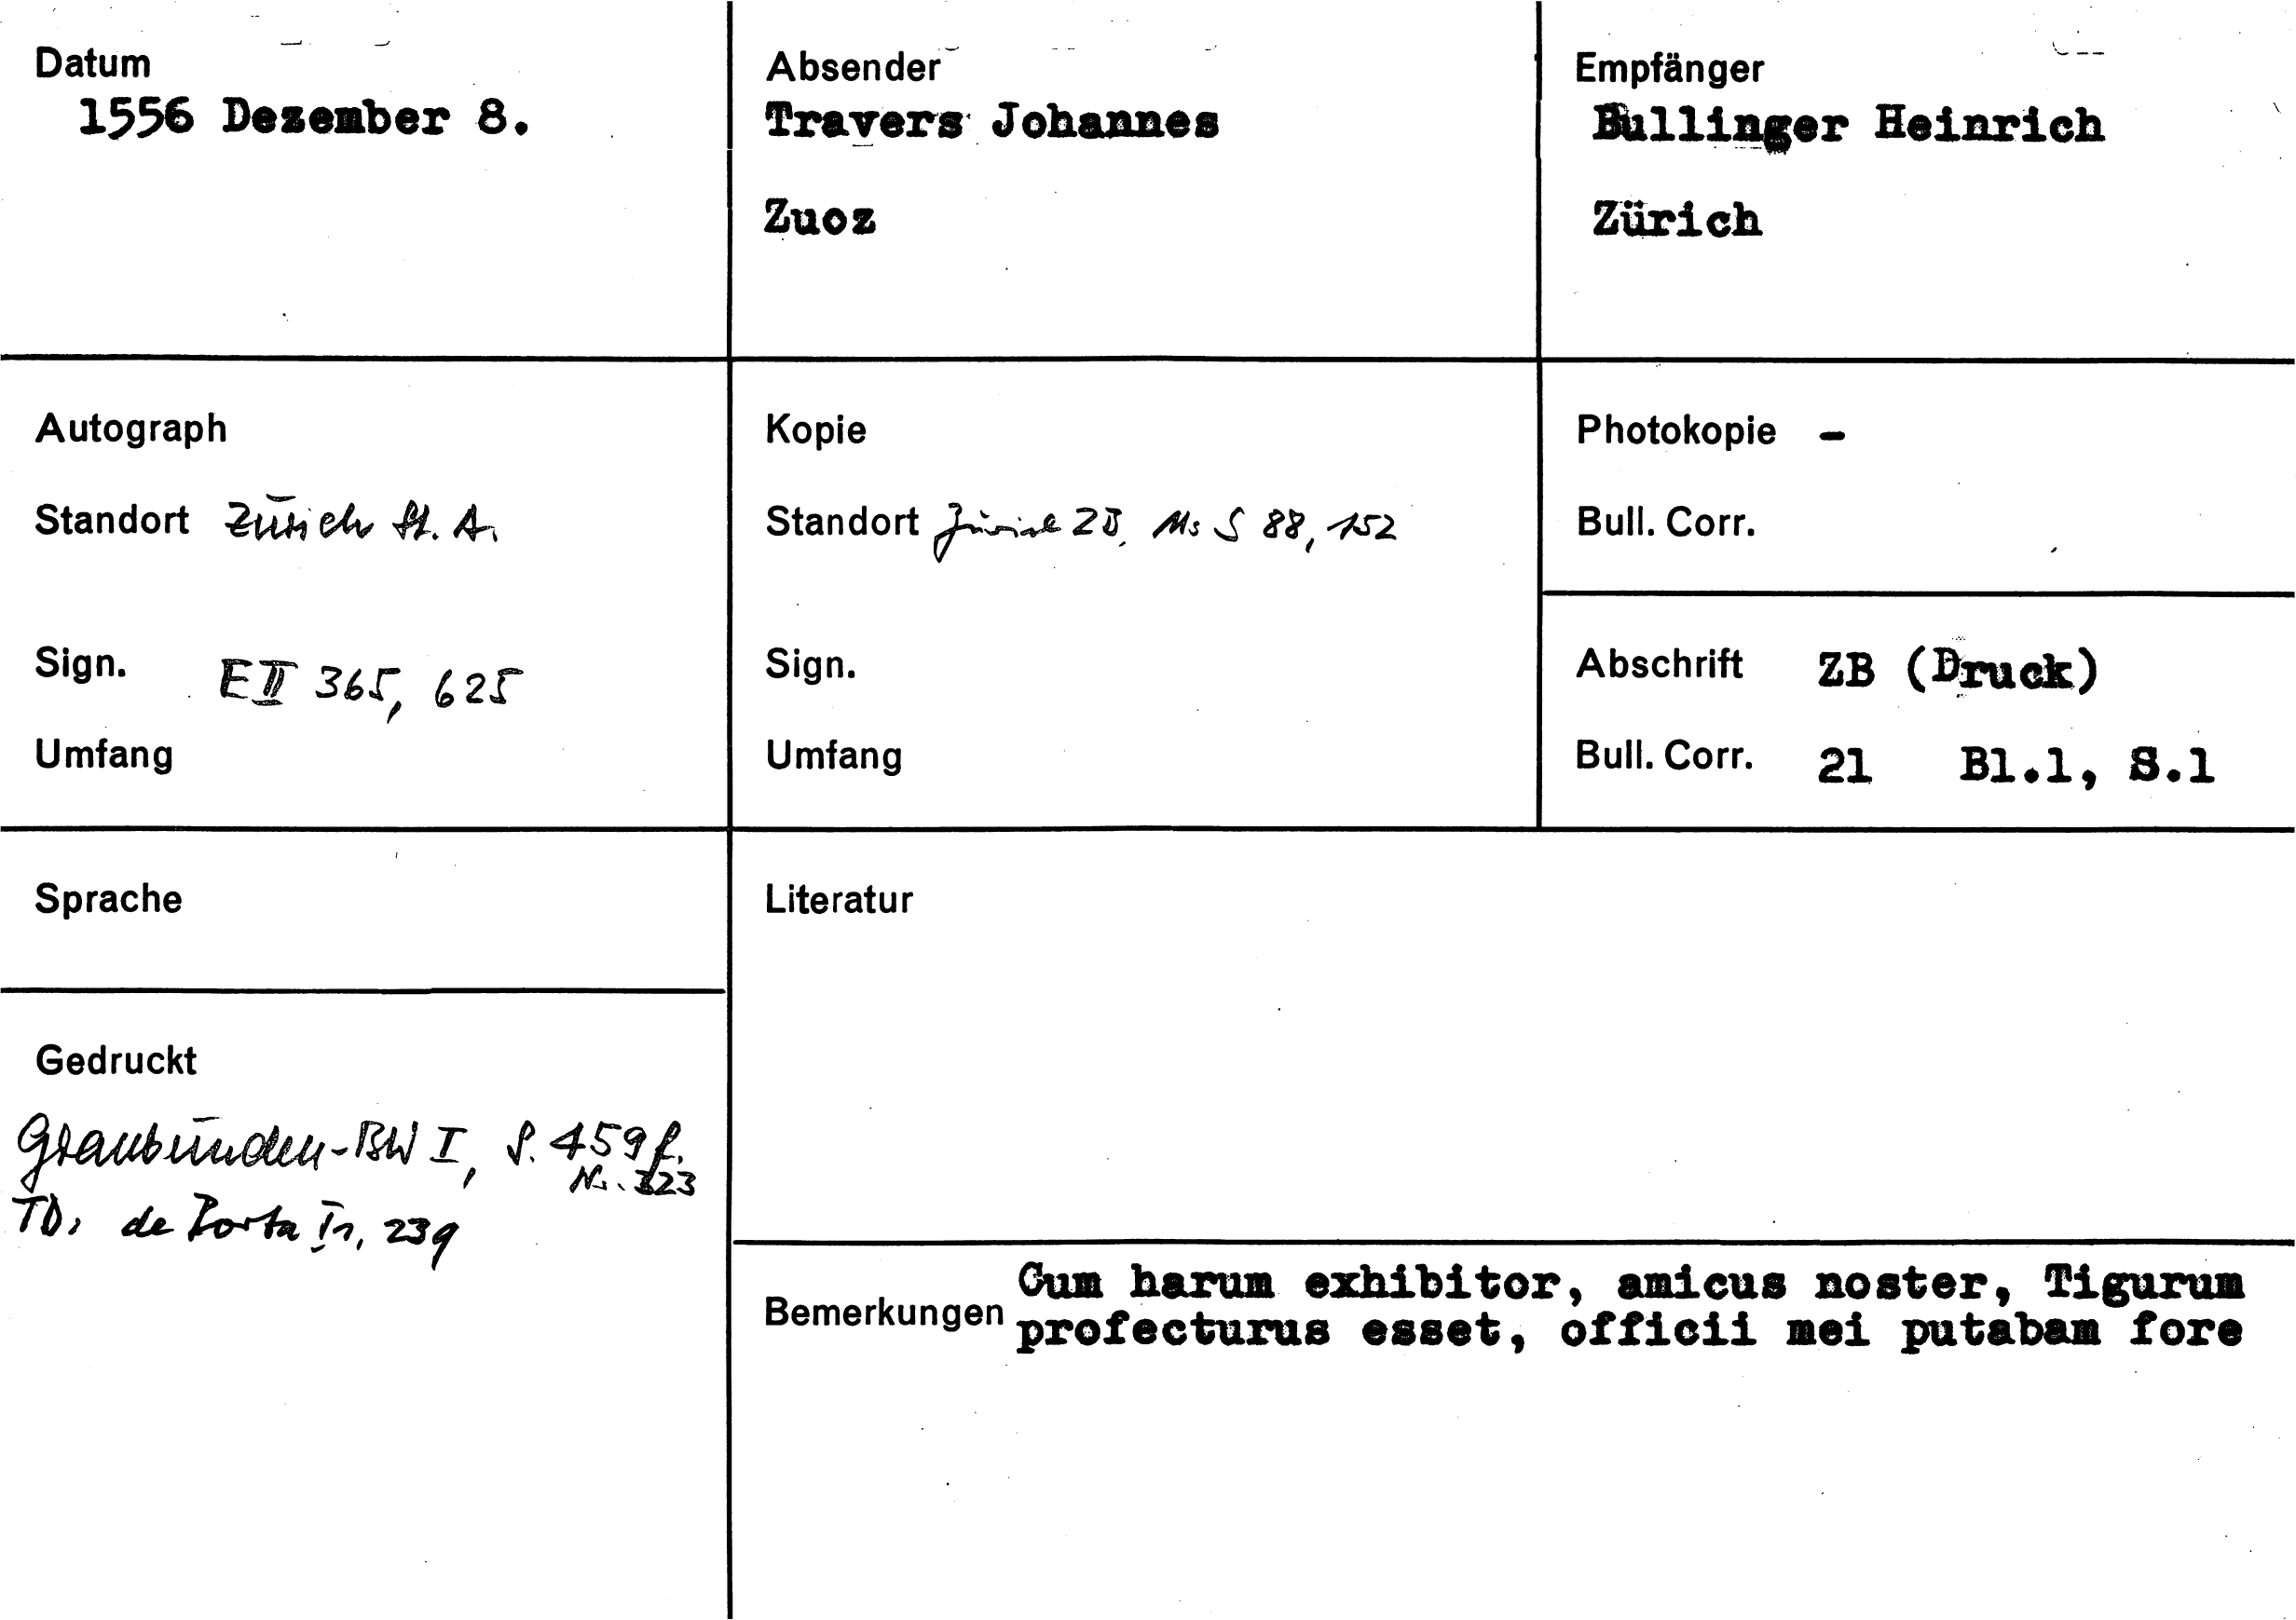 Datum
1556 Dezember 8.
Absender
Travers Johannes
Zuoz
Empfänger
Bullinger Heinrich
Zürich
Autograph
Standort Zürich St. A.
Sign. E II 365, 625
Umfang
Kopie
Standort Zürich ZB, Ms S 88, 152
Sign.
Umfang
Photokopie -
Bull. Corr.
Abschrift ZB (Druck)
Bull. Corr. 21 Bl.1, S.1
Sprache
Gedruckt
Graubünden-BW I, S. 459 f.
Nr. 323
TD: de Porta I 1, 239
Literatur
Bemerkungen
Cum harum exhibitor, amicus noster, Tigurum
profecturus esset, officii mei putabam fore